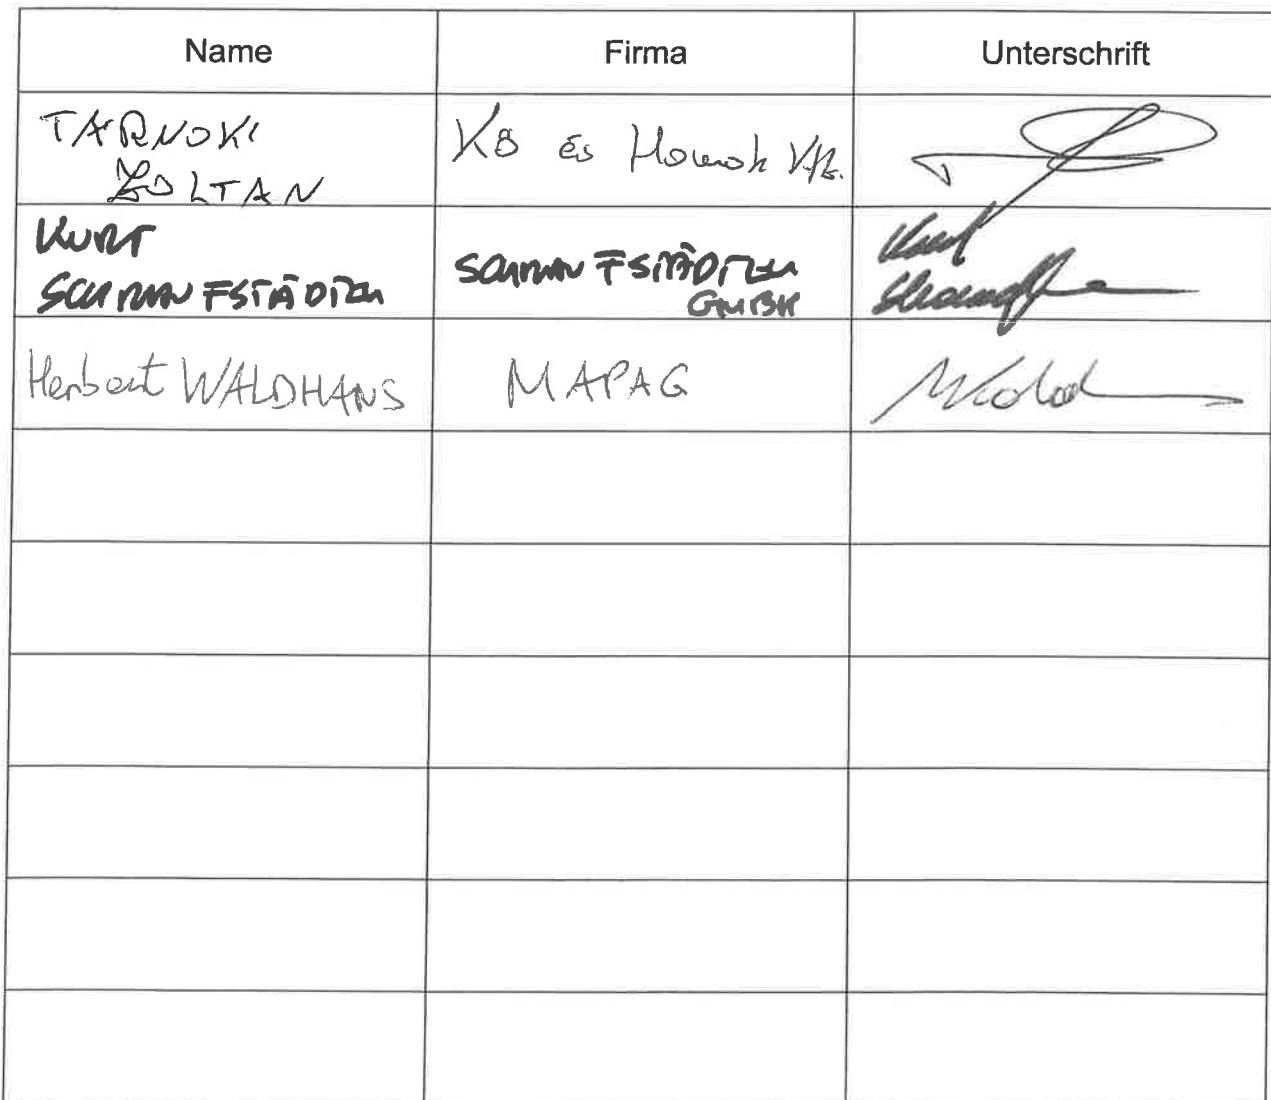 Name Firma Unterschrift
TARNOKI
ZOLTAN
Kő és Homok Kft.
KURT
SCHRANFSTÄDTER
SCHRANFSTÄDTER
GMBH
Kurt
Herbert WALDHANS MAPAG